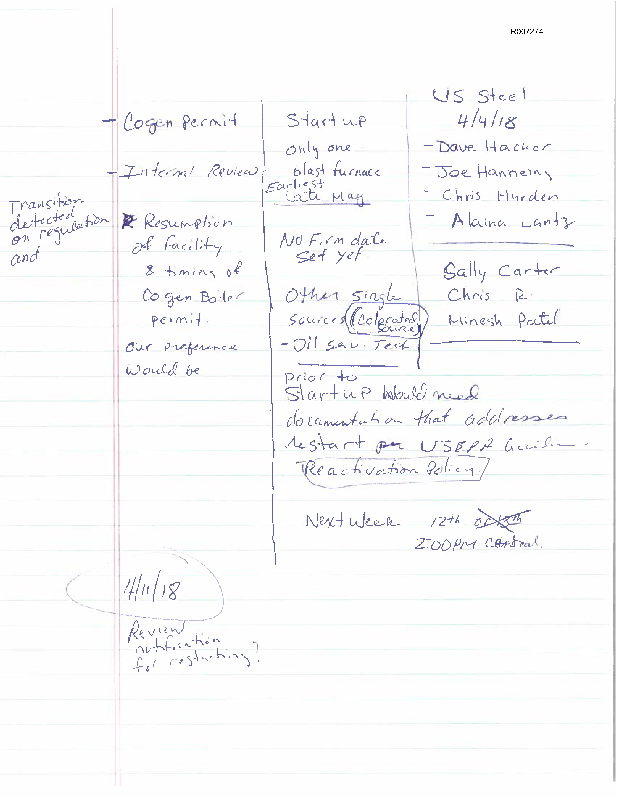 R007274
US Steel
4/4/18
- Dave Hacker
- Joe Hanning
- Chris Hurden
- Alaina Lantz
Sally Carter
Chris R.
Minesh Patel
- Cogen Permit
- Internal Review
Transition
detected
on regulation
and
Resumption
of facility
& timing of
Cogen Boiler
permit.
Our preference
would be
Startup
only one
blast furnace
Earliest
Late May
No Firm date
set yet
Other single
sources (Colocated
Source)
- Oil Sau. Tech
prior to
Startup would need
documentation that addresses
restart USEPA
Reactivation Policy
Next week 12th or 13th
2:00 PM Central
4/11/18
Review
notification
for restarting?